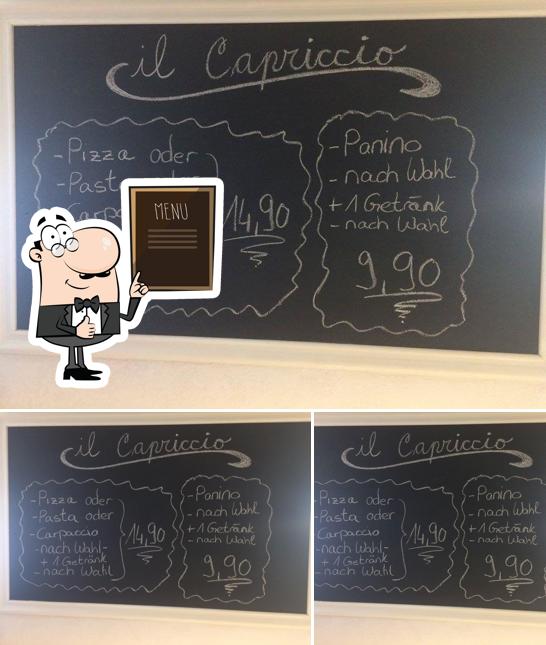 il Capriccio
- Pizza oder
- Past
Carpa
14,90
- Panino
- nach Wahl
+ 1 Getränk
- nach Wahl
9,90
MENU
il Capriccio
- Pizza oder
- Pasta oder
- Carpaccio
- nach Wahl -
+ 1 Getränk
- nach Wahl
14,90
- Panino
- nach Wahl
+ 1 Getränk
- nach Wahl
9,90
il Capriccio
Pizza oder
Pasta oder
Carpaccio
nach Wahl -
+ 1 Getränk
nach Wahl
14,90
- Panino
- nach Wahl
+ 1 Getränk
- nach Wahl
9,90